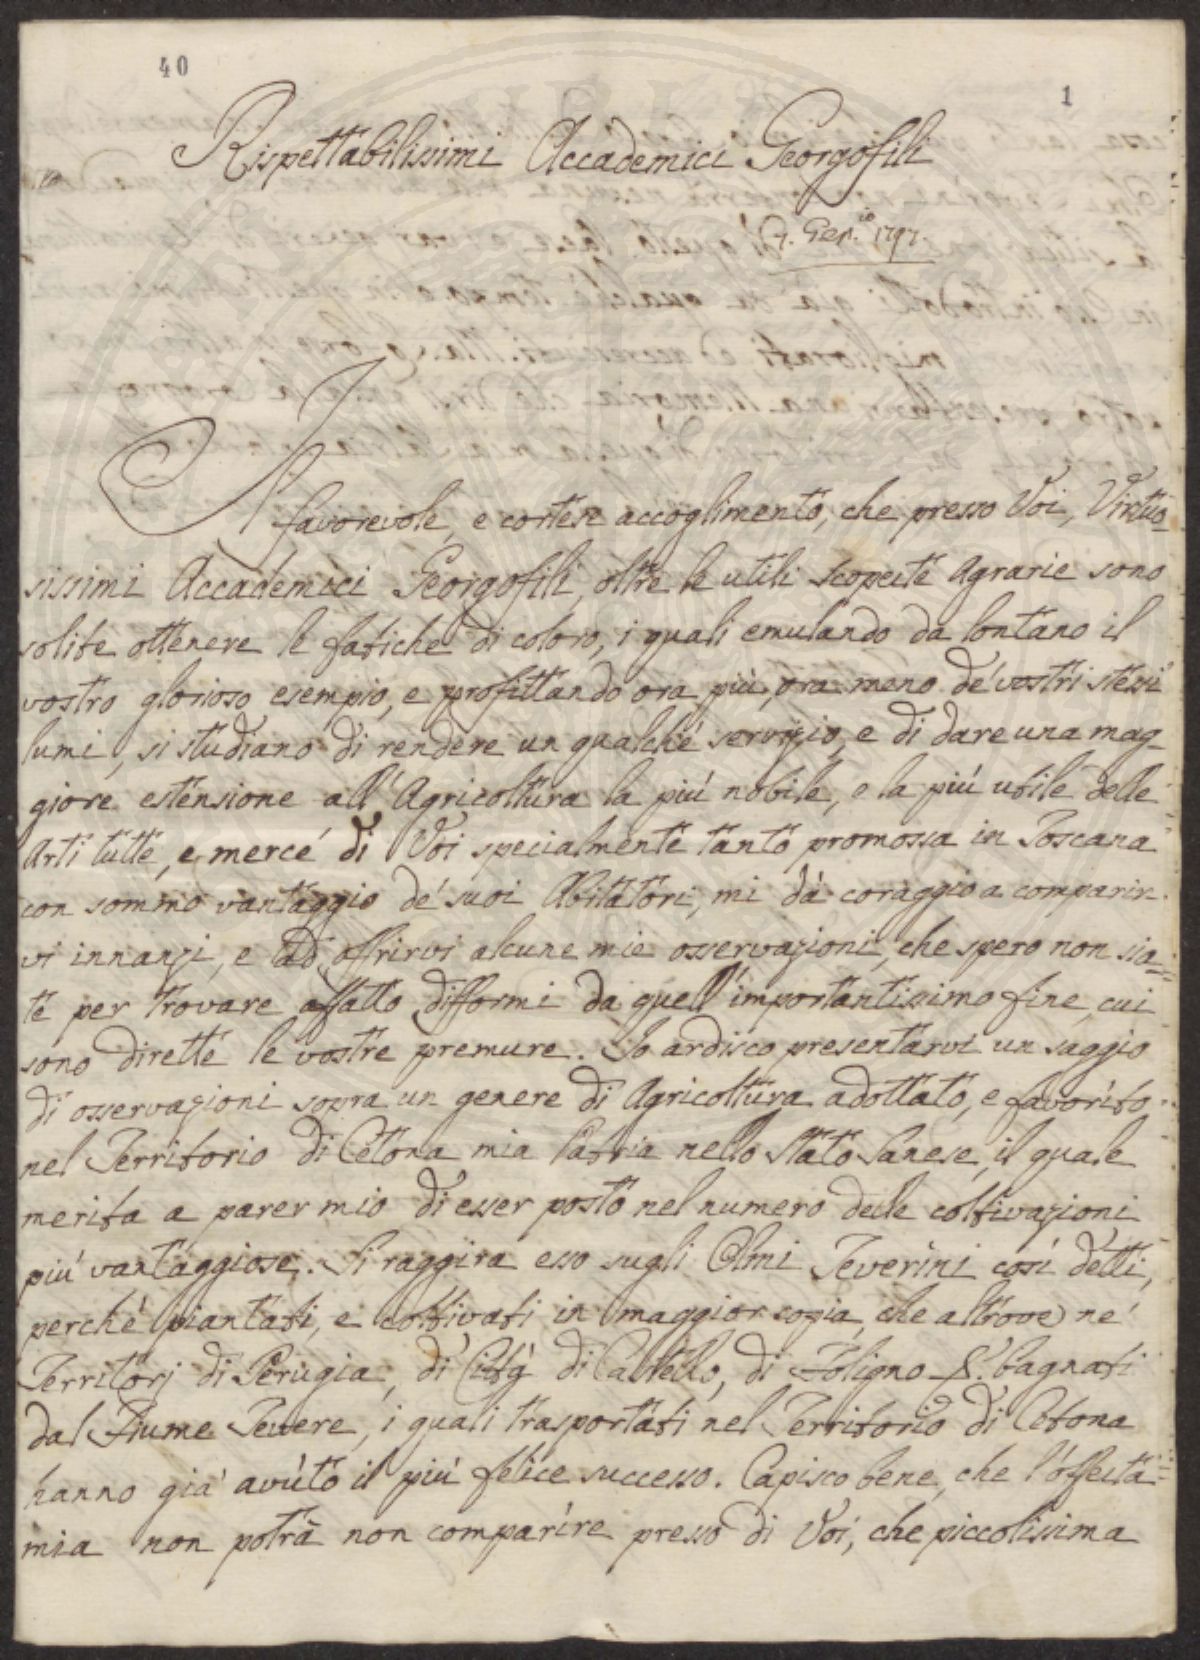 40
1
Rispettabilissimi Accademici Georgofili
7. Gen.io 1797.
Il favorevole, e cortese accoglimento, che presso Voi, Virtuo-
sissimi Accademici Georgofili, oltre le utili scoperte Agrarie sono
solite ottenere le fatiche di coloro, i quali emulando da lontano il
vostro glorioso esempio, e profittando ora più, ora meno de' vostri stessi
lumi, si studiano di rendere un qualche servizio, e di dare una mag-
giore estensione all'Agricoltura la più nobile, e la più utile delle
Arti tutte, e mercé di Voi specialmente tanto promossa in Toscana
con sommo vantaggio de' suoi Abitatori, mi dà coraggio a comparir-
vi innanzi, e ad offrirvi alcune mie osservazioni, che spero non sia-
te per trovare affatto difformi da quell'importantissimo fine, cui
sono dirette le vostre premure. Io ardisco presentarvi un saggio
di osservazioni sopra un genere di Agricoltura adottato, e favorito
nel Territorio di Cetona mia Patria nello Stato Sanese, il quale
merita a parer mio di esser posto nel numero delle coltivazioni
più vantaggiose. Si raggira esso sugli Olmi Teverini così detti,
perché piantati, e coltivati in maggior copia, che altrove ne'
Territorj di Perugia, di Città di Castello, di Foligno &. bagnati
dal Fiume Tevere, i quali trasportati nel Territorio di Cetona
hanno già avuto il più felice successo. Capisco bene, che l'offerta
mia non potrà non comparire presso di Voi, che piccolissima